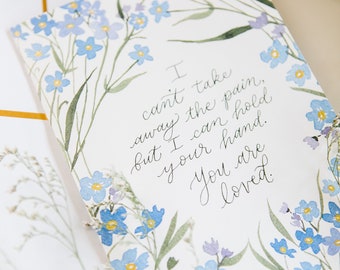 I
can't take
away the pain,
but I can hold
your hand.
You are
loved.